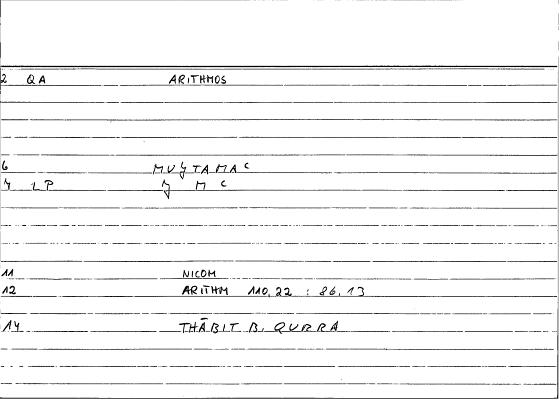 2 QA ARITHMOS
6 MUǦTAMAʿ
7 LP Ǧ M ʿ
11 NICOM
12 ARITHM 110,22 : 86,13
14 THĀBIT B. QURRA